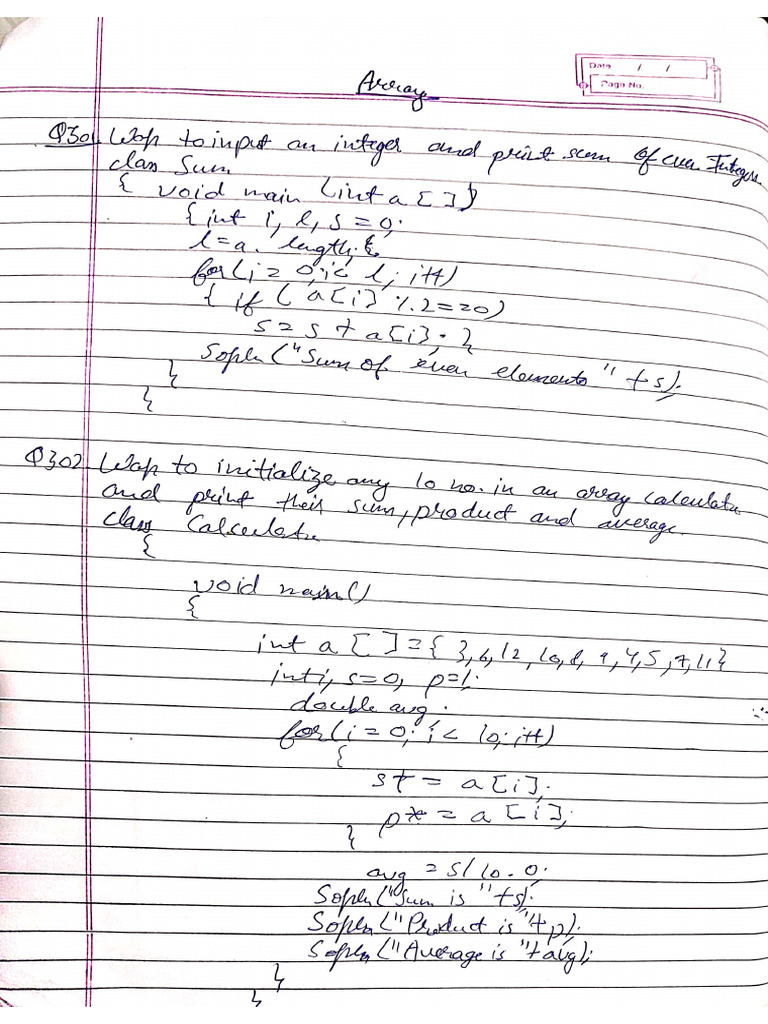 Array
Date / /
Page No.
Q301 Wap to input an integer and print sum of even Integers
class Sum
{ void main (int a [ ])
{ int i, l, s = 0;
l = a. length;
for(i = 0; i < l; i++)
{ if ( a[i] %2 == 0)
s = s + a[i]; }
Sopln ("Sum of even elements" + s);
}
}
Q302 Wap to initialize any 10 no. in an array calculate
and print their sum, product and average.
class Calculate
{
void main()
{
int a [ ] = { 3, 6, 12, 10, 8, 9, 4, 5, 7, 11 }
int i, s=0, p=1;
double avg;
for(i = 0; i < 10; i++)
{
s+ = a[i];
p* = a[i];
}
avg = s/10.0;
Sopln("Sum is "+s);
Sopln("Product is "+p);
Sopln("Average is "+avg);
}
}